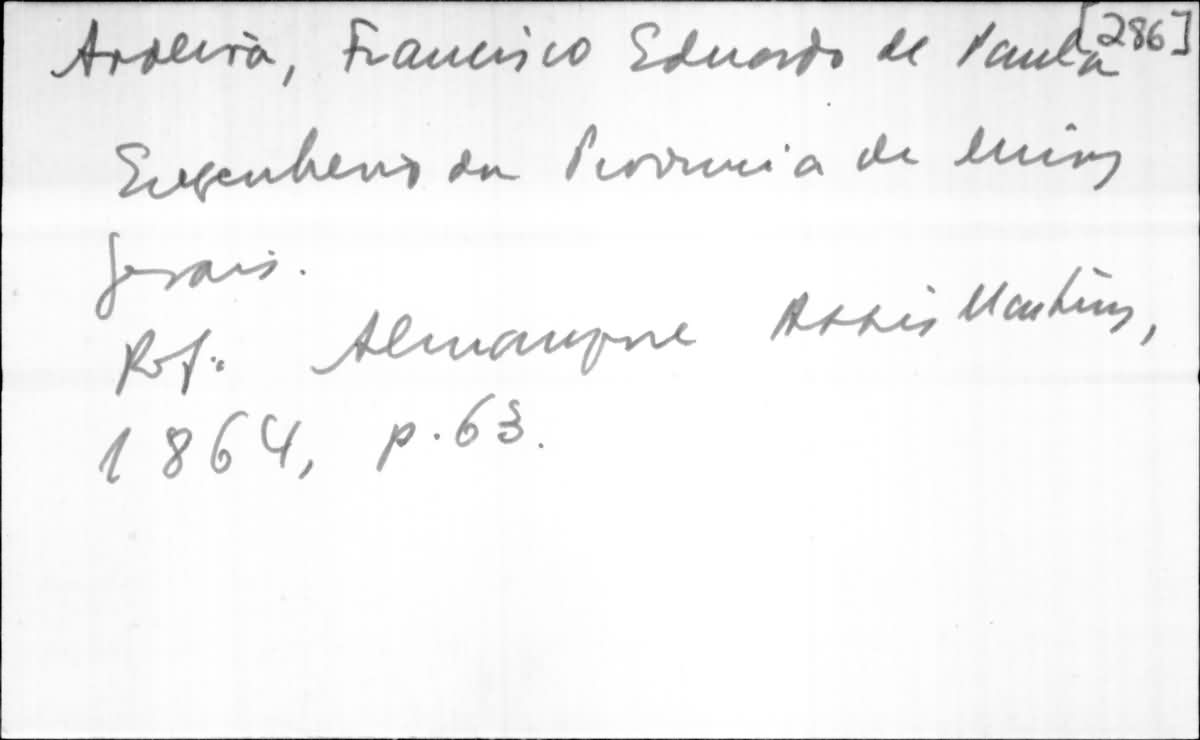 Aroeira, Francisco Eduardo de Paula [286]
Engenheiro da Provincia de Minas
Gerais.
Ref: Almanaque Assis Martins,
1864, p. 63.